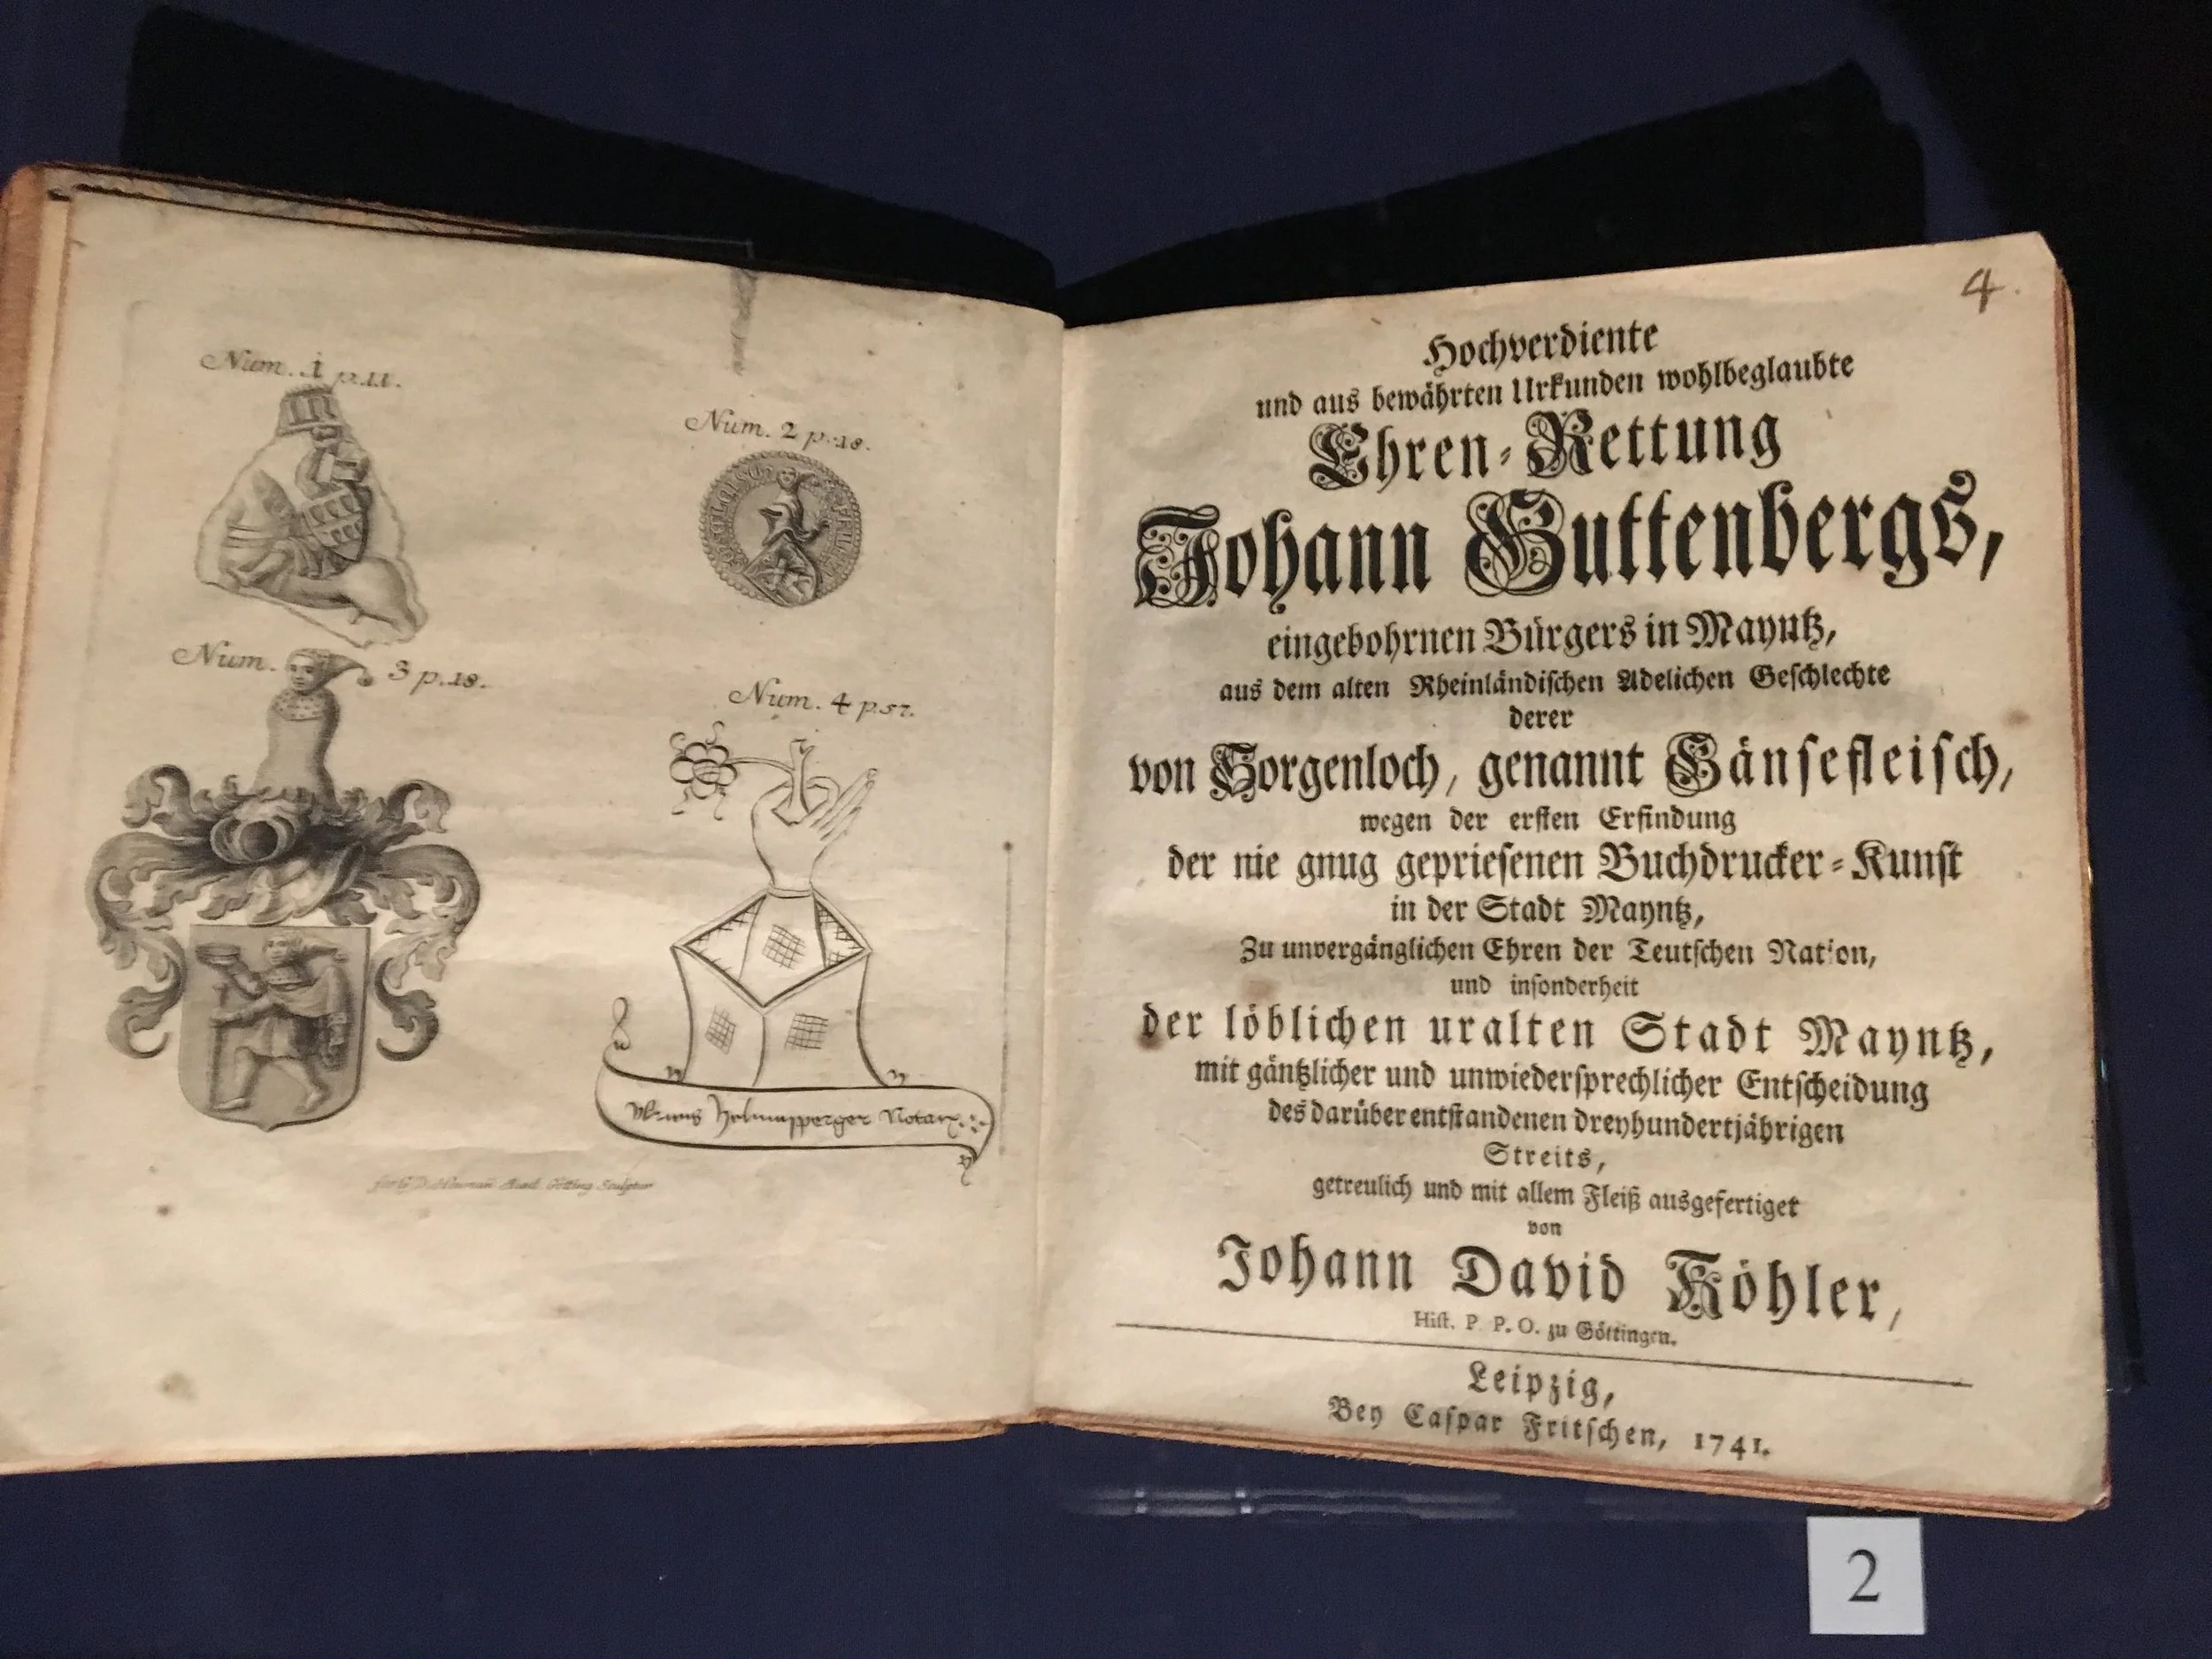 Num. 1 p.11.
Num. 2 p.18.
Num. 3 p.18.
Num. 4 p.57.
Notar
Sculptor
4.
Hochverdiente
und aus bewährten Urkunden wohlbeglaubte
Ehren-Rettung
Johann Guttenbergs,
eingebohrnen Bürgers in Mayntz,
aus dem alten Rheinländischen Adelichen Geschlechte
derer
von Sorgenloch, genannt Gänsefleisch,
wegen der ersten Erfindung
der nie gnug gepriesenen Buchdrucker-Kunst
in der Stadt Mayntz,
Zu unvergänglichen Ehren der Teutschen Nation,
und insonderheit
der löblichen uralten Stadt Mayntz,
mit gäntzlicher und unwiedersprechlicher Entscheidung
des darüber entstandenen dreyhundertjährigen
Streits,
getreulich und mit allem Fleiß ausgefertiget
von
Johann David Köhler,
Hist. P. P. O. zu Göttingen.
Leipzig,
Bey Caspar Fritschen, 1741.
2